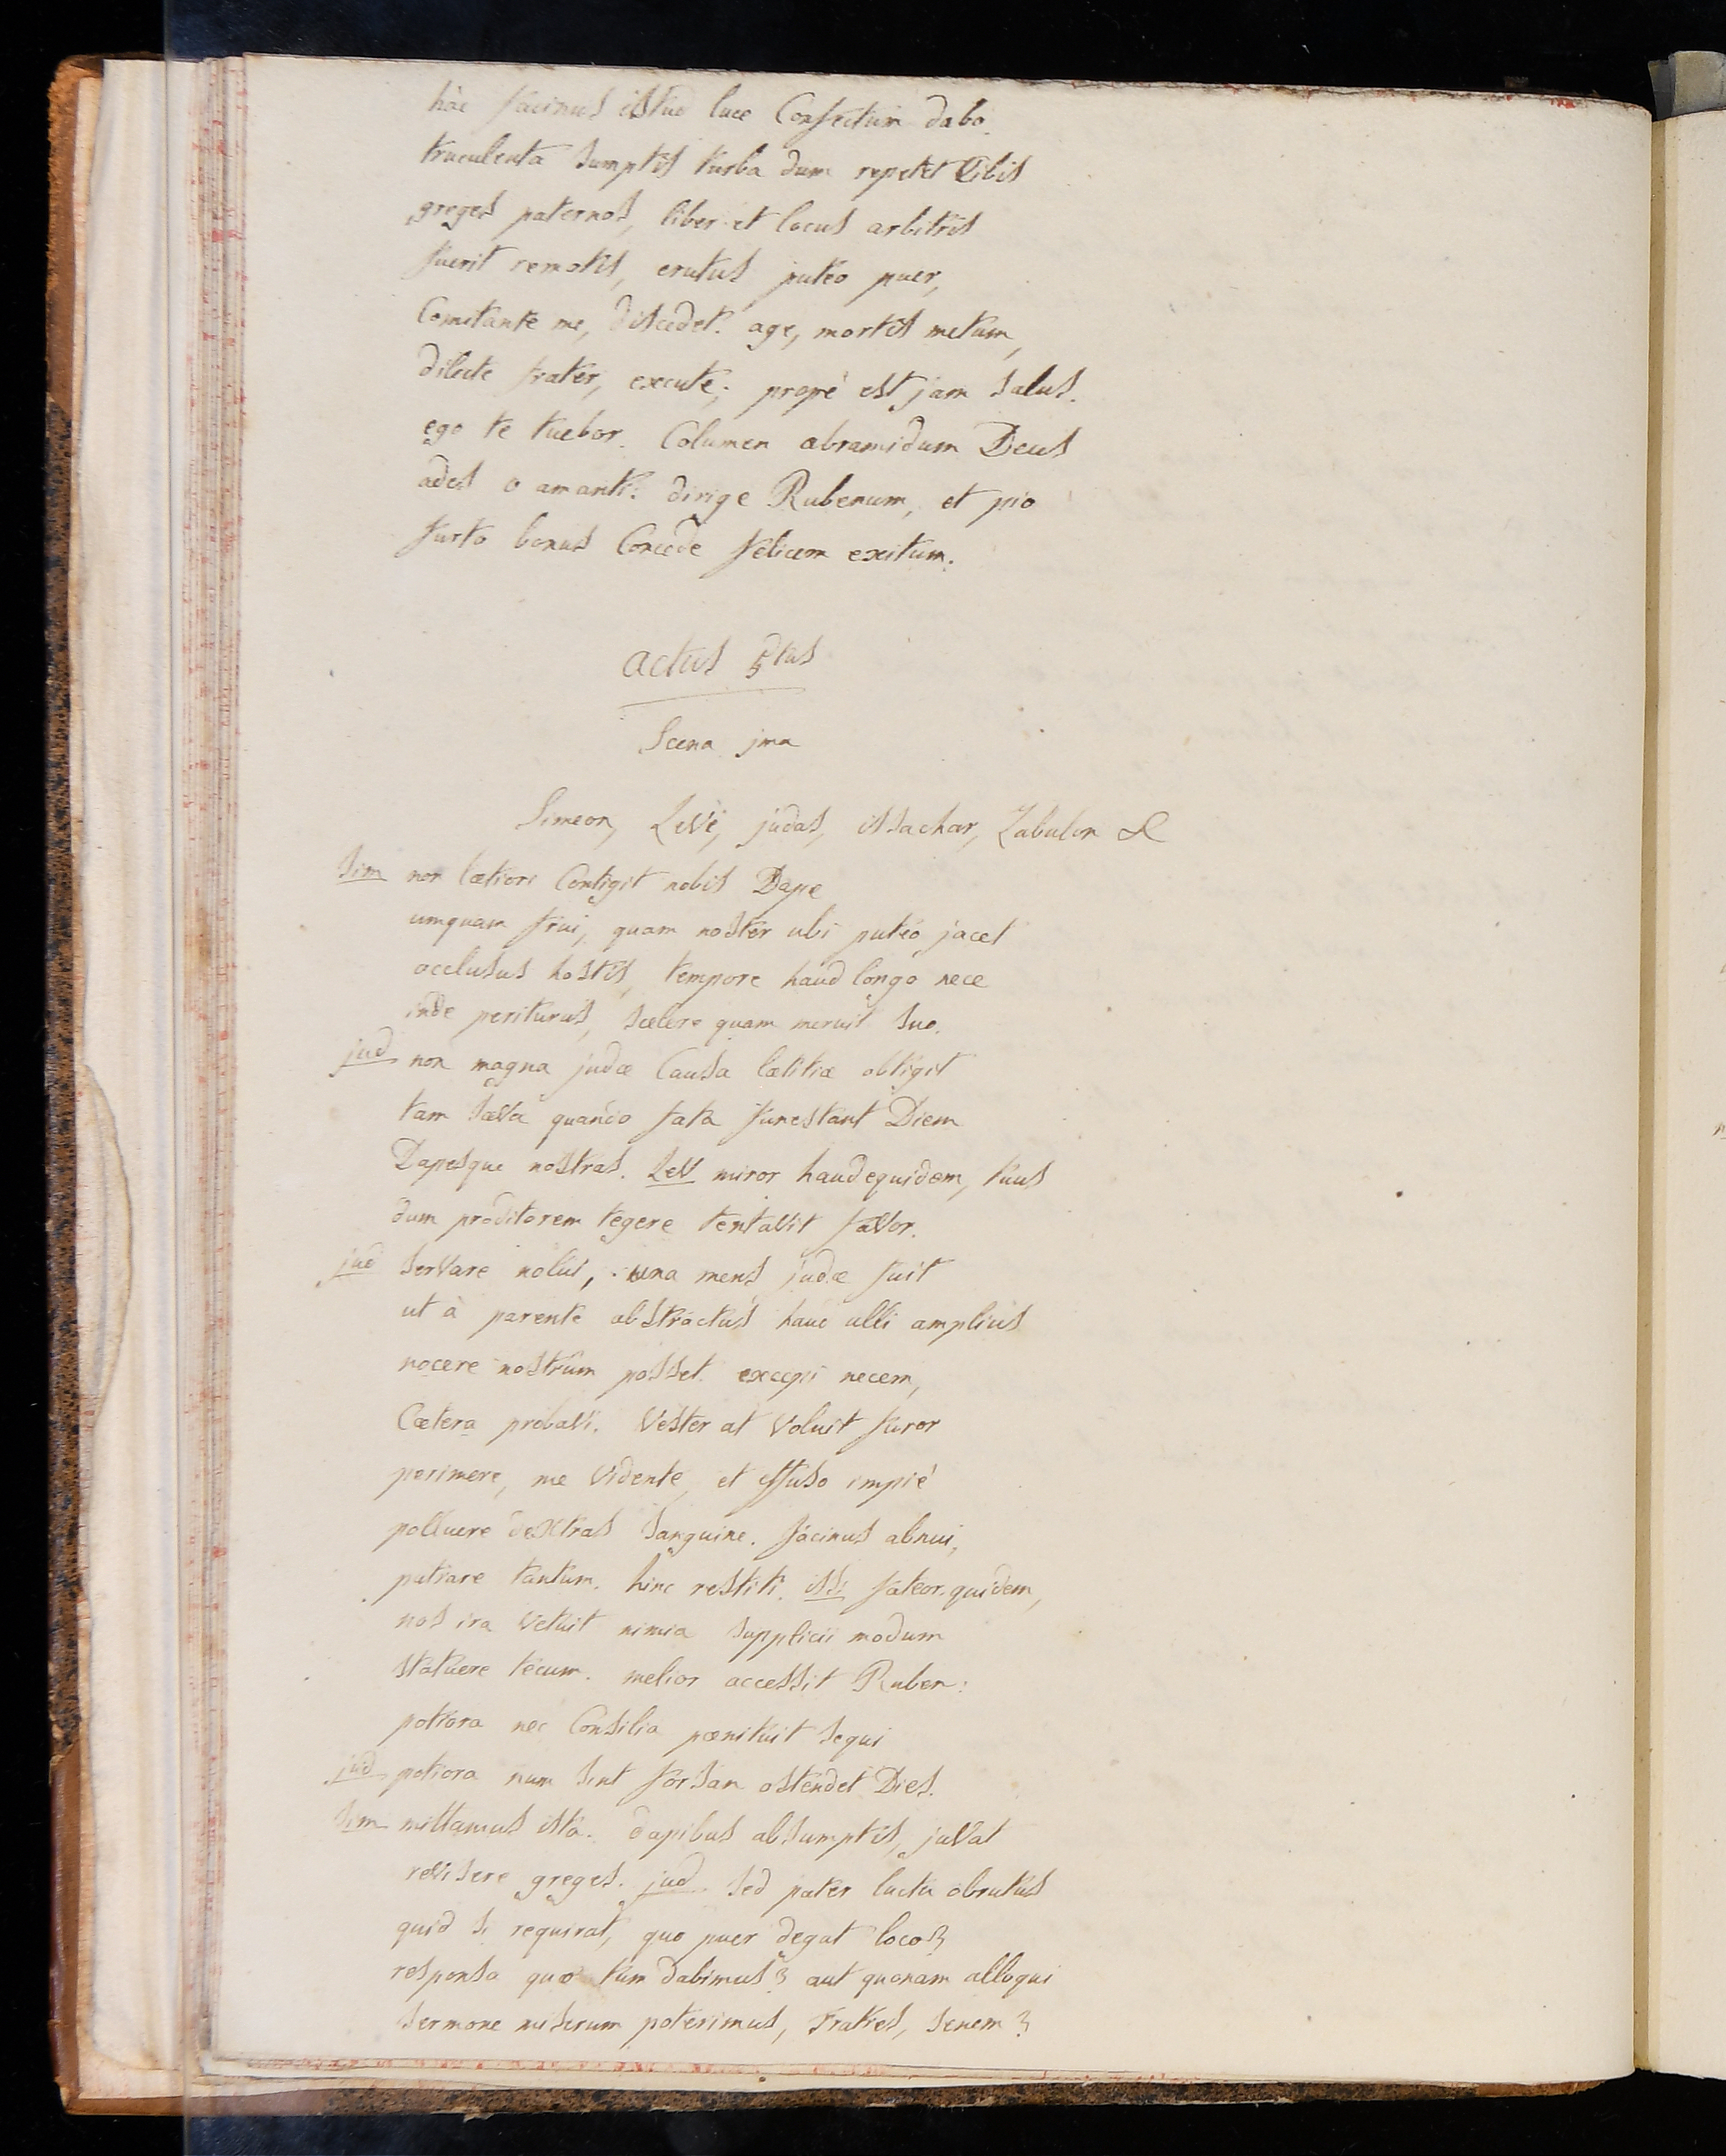 hâc facinus istud luce Confectum dabo.
truculenta sumptis turba dum repetet Cibis
greges paternos, liber et locus arbitris
fuerit remotis, erutus puteo puer,
Comitante me, discedet. age, mortis metum,
dilecte frater, excute; propè est jam salus.
ego te tuebor. Columen abramidum Deus
ades o amanti: dirige Rubenum, et pio
furto bonus Concede felicem exitum.
actus 5tus
Scena jma
Simeon, Levi, judas, issachar, Zabulon &
Sim non lætiori Contigit nobis Dape
umquam frui, quam noster ubi puteo jacet
occlusus hostis, tempore haud longo nece
inde periturus, scelere quam meruit suo.
jud non magna judæ Causa lætitiæ obtigit
tam sæva quando fata funestant Diem
Dapesque nostras. Lev miror haudequidem, tuus
dum proditorem tegere tentavit favor.
jud servare nolui, una mens judæ fuit
ut à parente abstractus haud ulli amplius
nocere nostrûm posset. excepi necem,
Cætera probavi. vester at voluit furor
perimere, me vidente, et effuso impiè
polluere dextras sanguine. facinus abnui,
patrare tantum. hinc restiti. iss fateor quidem,
nos ira vetuit nimia supplicii modum
statuere tecum. melior accessit Ruben:
potiora nec Consilia pænituit sequi
jud potiora num sint forsan ostendet Dies.
Sim mittamus ista. dapibus absumptis, juvat
revisere greges. jud sed pater luctu obrutus
quid si requirat, quo puer degat loco?
responsa quæ tum dabimus? aut quonam alloqui
sermone miserum poterimus, fratres, senem?